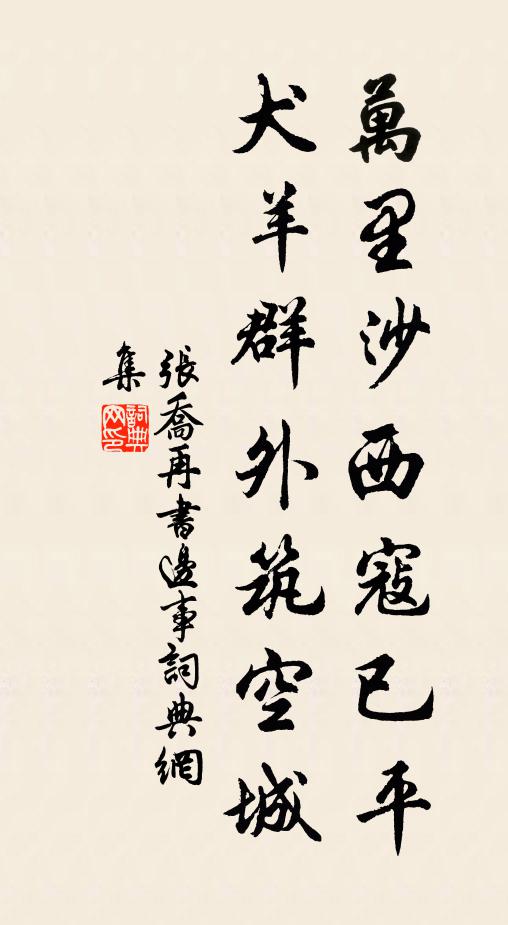 萬里沙西寇已平
犬羊群外筑空城
張喬再書邊事詞典網
集
詞典
网印